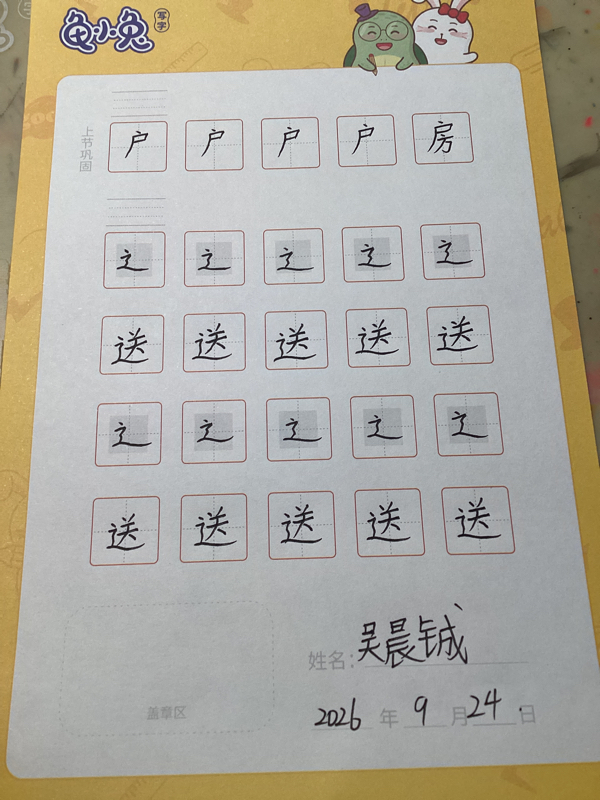 龟小兔写字
上节巩固
户 户 户 户 房
辶 辶 辶 辶 辶
送 送 送 送 送
辶 辶 辶 辶 辶
送 送 送 送 送
姓名：吴晨铖
盖章区
2026 年 9 月 24 日